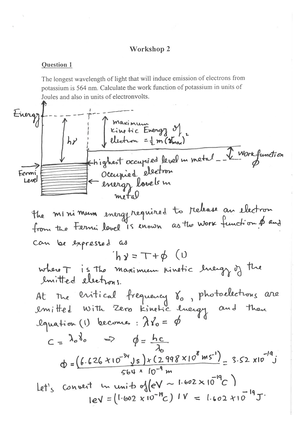 Workshop 2
Question 1
The longest wavelength of light that will induce emission of electrons from
potassium is 564 nm. Calculate the work function of potassium in units of
Joules and also in units of electronvolts.
Energy
maximum
kinetic Energy of
electron = ½ m(v max)²
hν
workfunction
Φ
highest occupied level in metal
Fermi
Level
Occupied electron
energy levels in
metal
the minimum energy required to release an electron
from the Fermi level is known as the work function Φ and
can be expressed as
hν = T + Φ (1)
where T is the maximum kinetic energy of the
emitted electrons.
At the critical frequency γ₀, photoelectrons are
emitted with zero kinetic energy and then
equation (1) become: hγ₀ = Φ
C = λ₀γ₀ ⇒ Φ = hc/λ₀
Φ = (6.626 × 10⁻³⁴ Js) × (2.998 × 10⁸ ms⁻¹) / 564 × 10⁻⁹ m = 3.52 × 10⁻¹⁹ J
Let's convert in units of (eV ~ 1.602 × 10⁻¹⁹ C)
1eV = (1.602 × 10⁻¹⁹ C) 1V = 1.602 × 10⁻¹⁹ J.